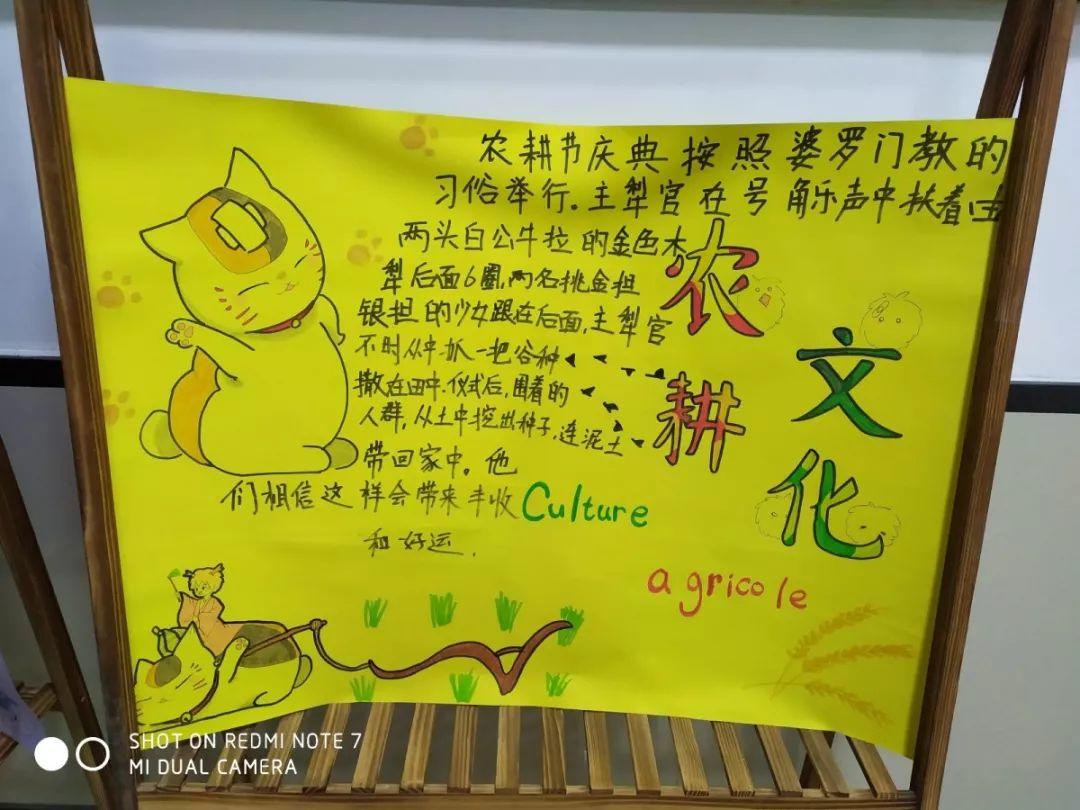 农耕节庆典按照婆罗门教的
习俗举行.主犁官在号角乐声中扶着由
两头白公牛拉的金色木
犁后面6圈,两名挑金担
银担的少女跟在后面,主犁官
不时从中抓一把谷种
撒在田中.仪式后,围着的
人群,从土中挖出种子,连泥土
带回家中。他
们相信这样会带来丰收
和好运.
农耕
文化
Culture
agricole
SHOT ON REDMI NOTE 7
MI DUAL CAMERA